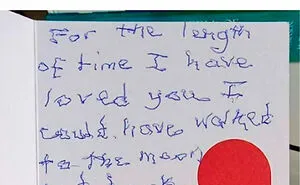 For the length
of time I have
loved you I
could have walked
to the moon